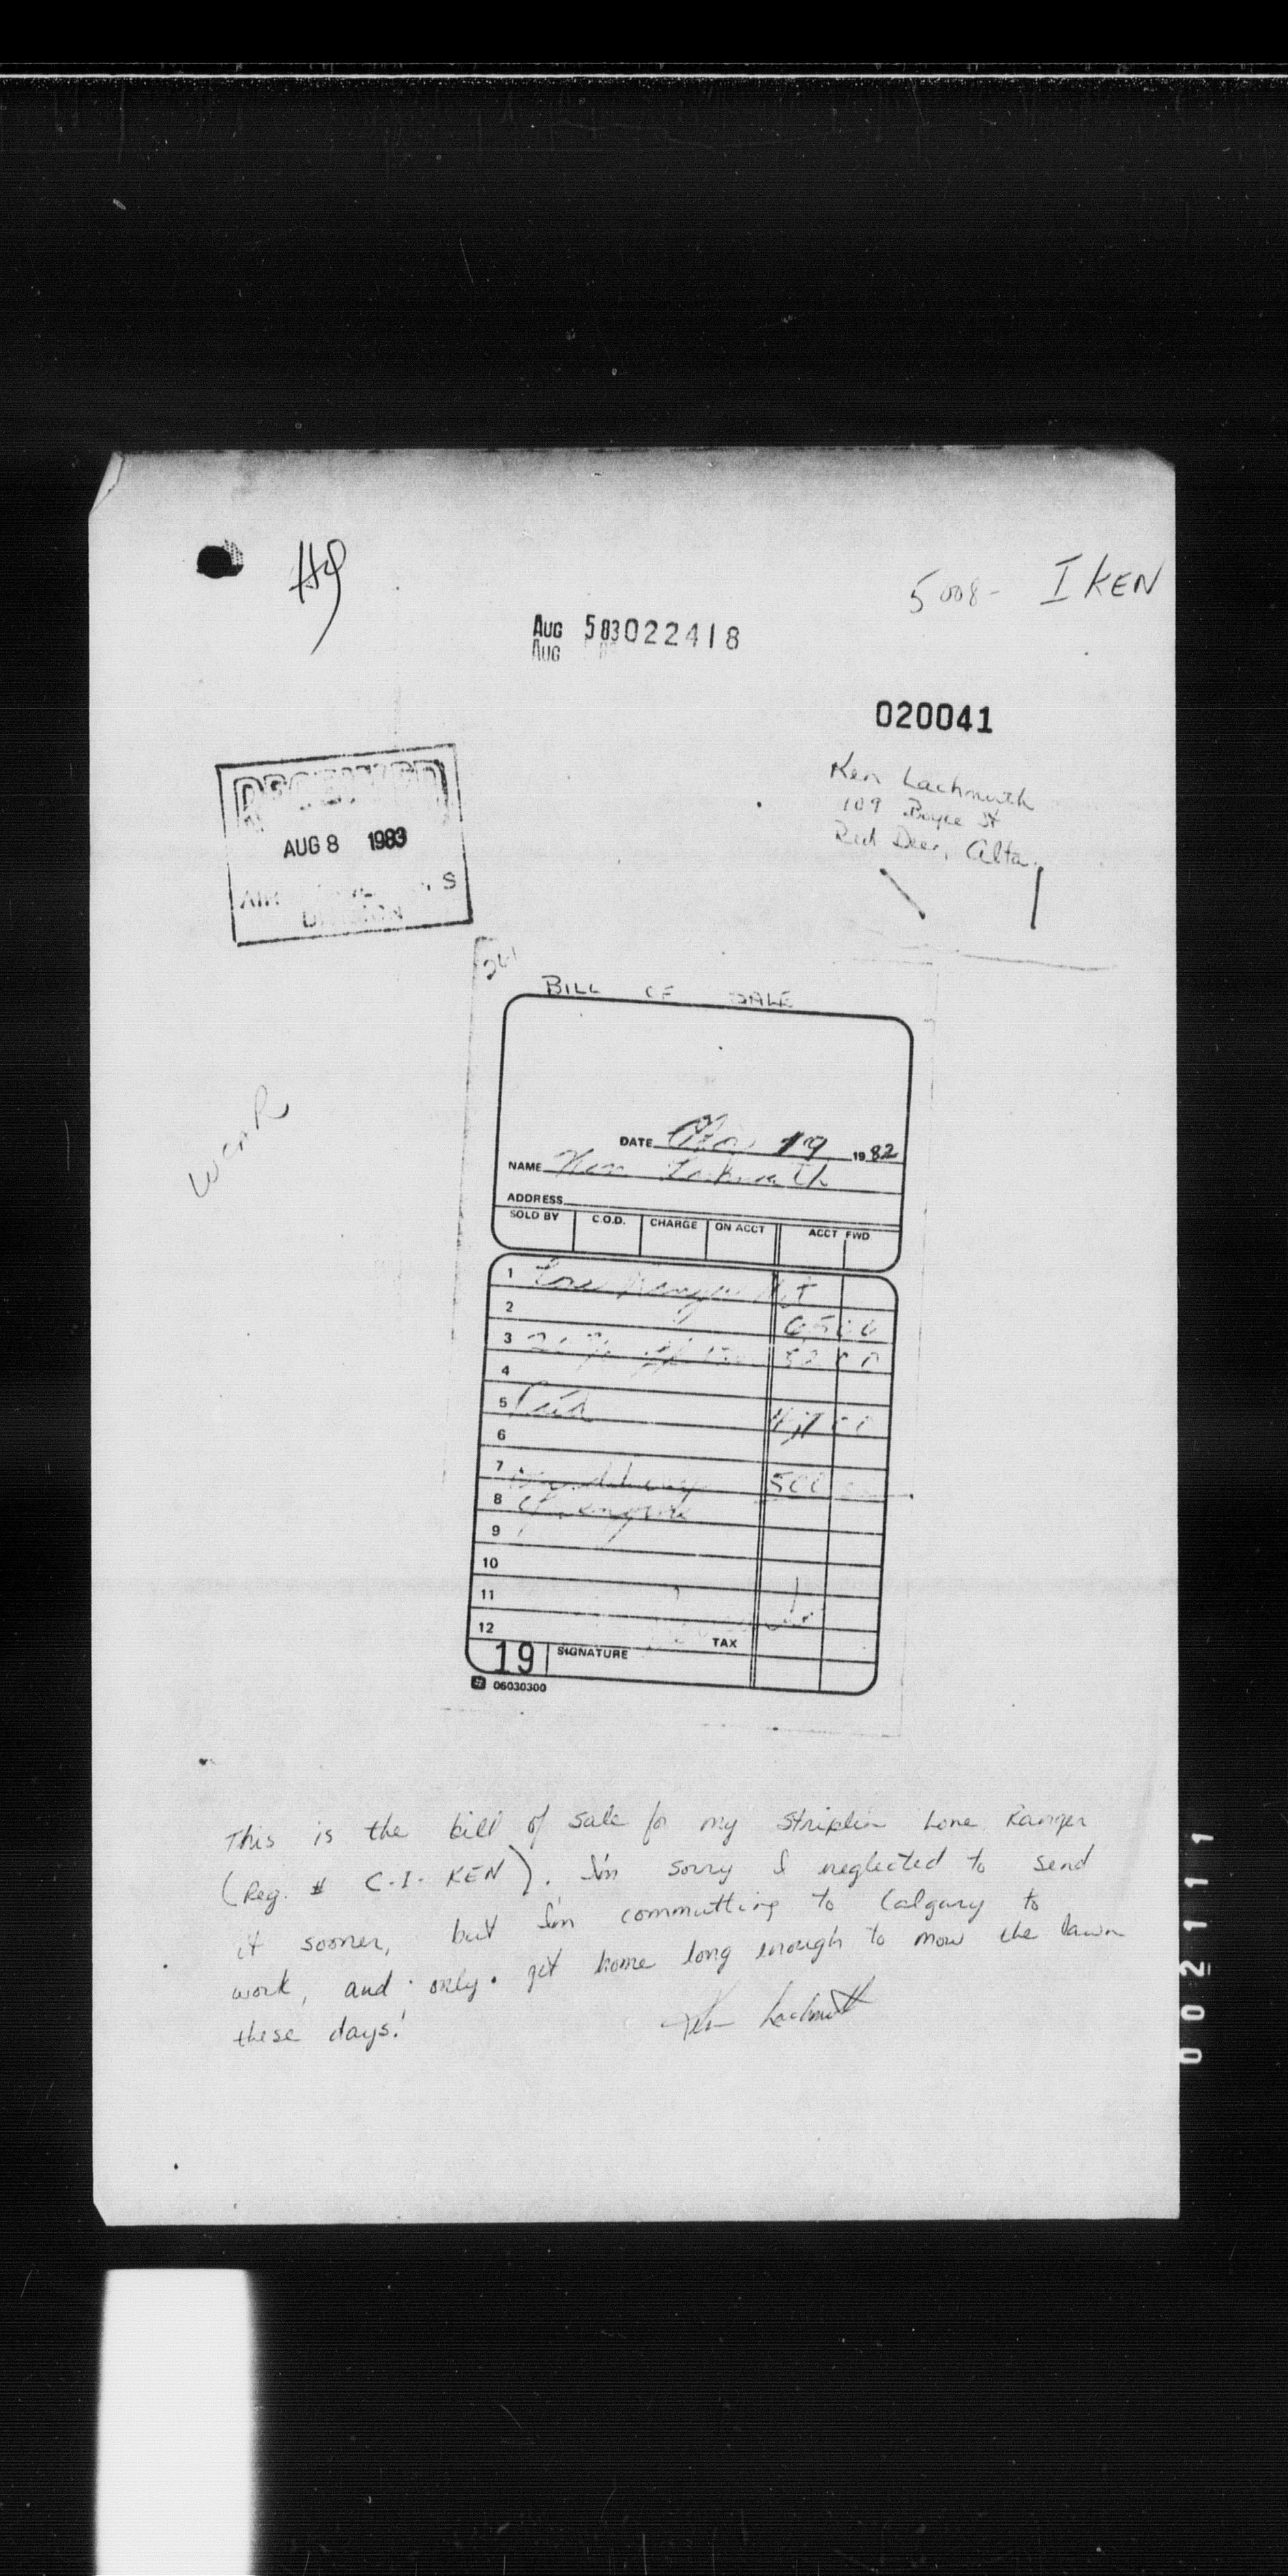 H9
5008- I KEN
AUG 5 83022418
AUG
020041
Ken Lachmuth
109 Boyce St
Red Deer, Alta.
RECEIVED
AUG 8 1983
AIR S
DIVISION
261
BILL OF SALE
DATE 19 1982
NAME Ken Lachmuth
ADDRESS
SOLD BY C.O.D. CHARGE ON ACCT ACCT FWD
1 Lone Ranger Kit
2 6500
3 20%
4
5
6
7 delivery 500
8 of engine
9
10
11
12
TAX
19 SIGNATURE
06030300
This is the bill of sale for my Striplin Lone Ranger
(Reg. # C-I-KEN). I'm sorry I neglected to send
it sooner, but I'm commutting to Calgary to
work, and only get home long enough to mow the lawn
these days!
Ken Lachmuth
002111